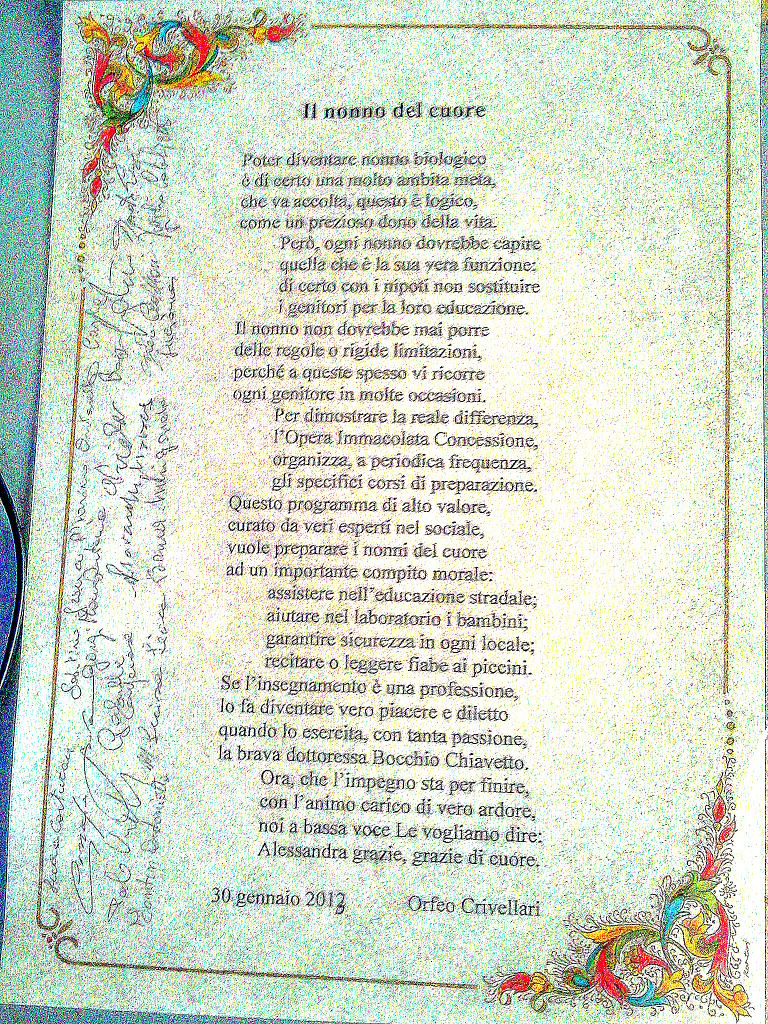 Il nonno del cuore
Poter diventare nonno biologico
è di certo una molto ambita meta,
che va accolta, questo è logico,
come un prezioso dono della vita.
Però, ogni nonno dovrebbe capire
quella che è la sua vera funzione:
di certo con i nipoti non sostituire
i genitori per la loro educazione.
Il nonno non dovrebbe mai porre
delle regole o rigide limitazioni,
perché a queste spesso vi ricorre
ogni genitore in molte occasioni.
Per dimostrare la reale differenza,
l'Opera Immacolata Concessione,
organizza, a periodica frequenza,
gli specifici corsi di preparazione.
Questo programma di alto valore,
curato da veri esperti nel sociale,
vuole preparare i nonni del cuore
ad un importante compito morale:
assistere nell'educazione stradale;
aiutare nel laboratorio i bambini;
garantire sicurezza in ogni locale;
recitare o leggere fiabe ai piccini.
Se l'insegnamento è una professione,
lo fa diventare vero piacere e diletto
quando lo esercita, con tanta passione,
la brava dottoressa Bocchio Chiavetto.
Ora, che l'impegno sta per finire,
con l'animo carico di vero ardore,
noi a bassa voce Le vogliamo dire:
Alessandra grazie, grazie di cuore.
30 gennaio 2013 Orfeo Crivellari